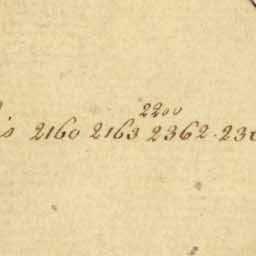 2200
is 2160 2163 2362. 230